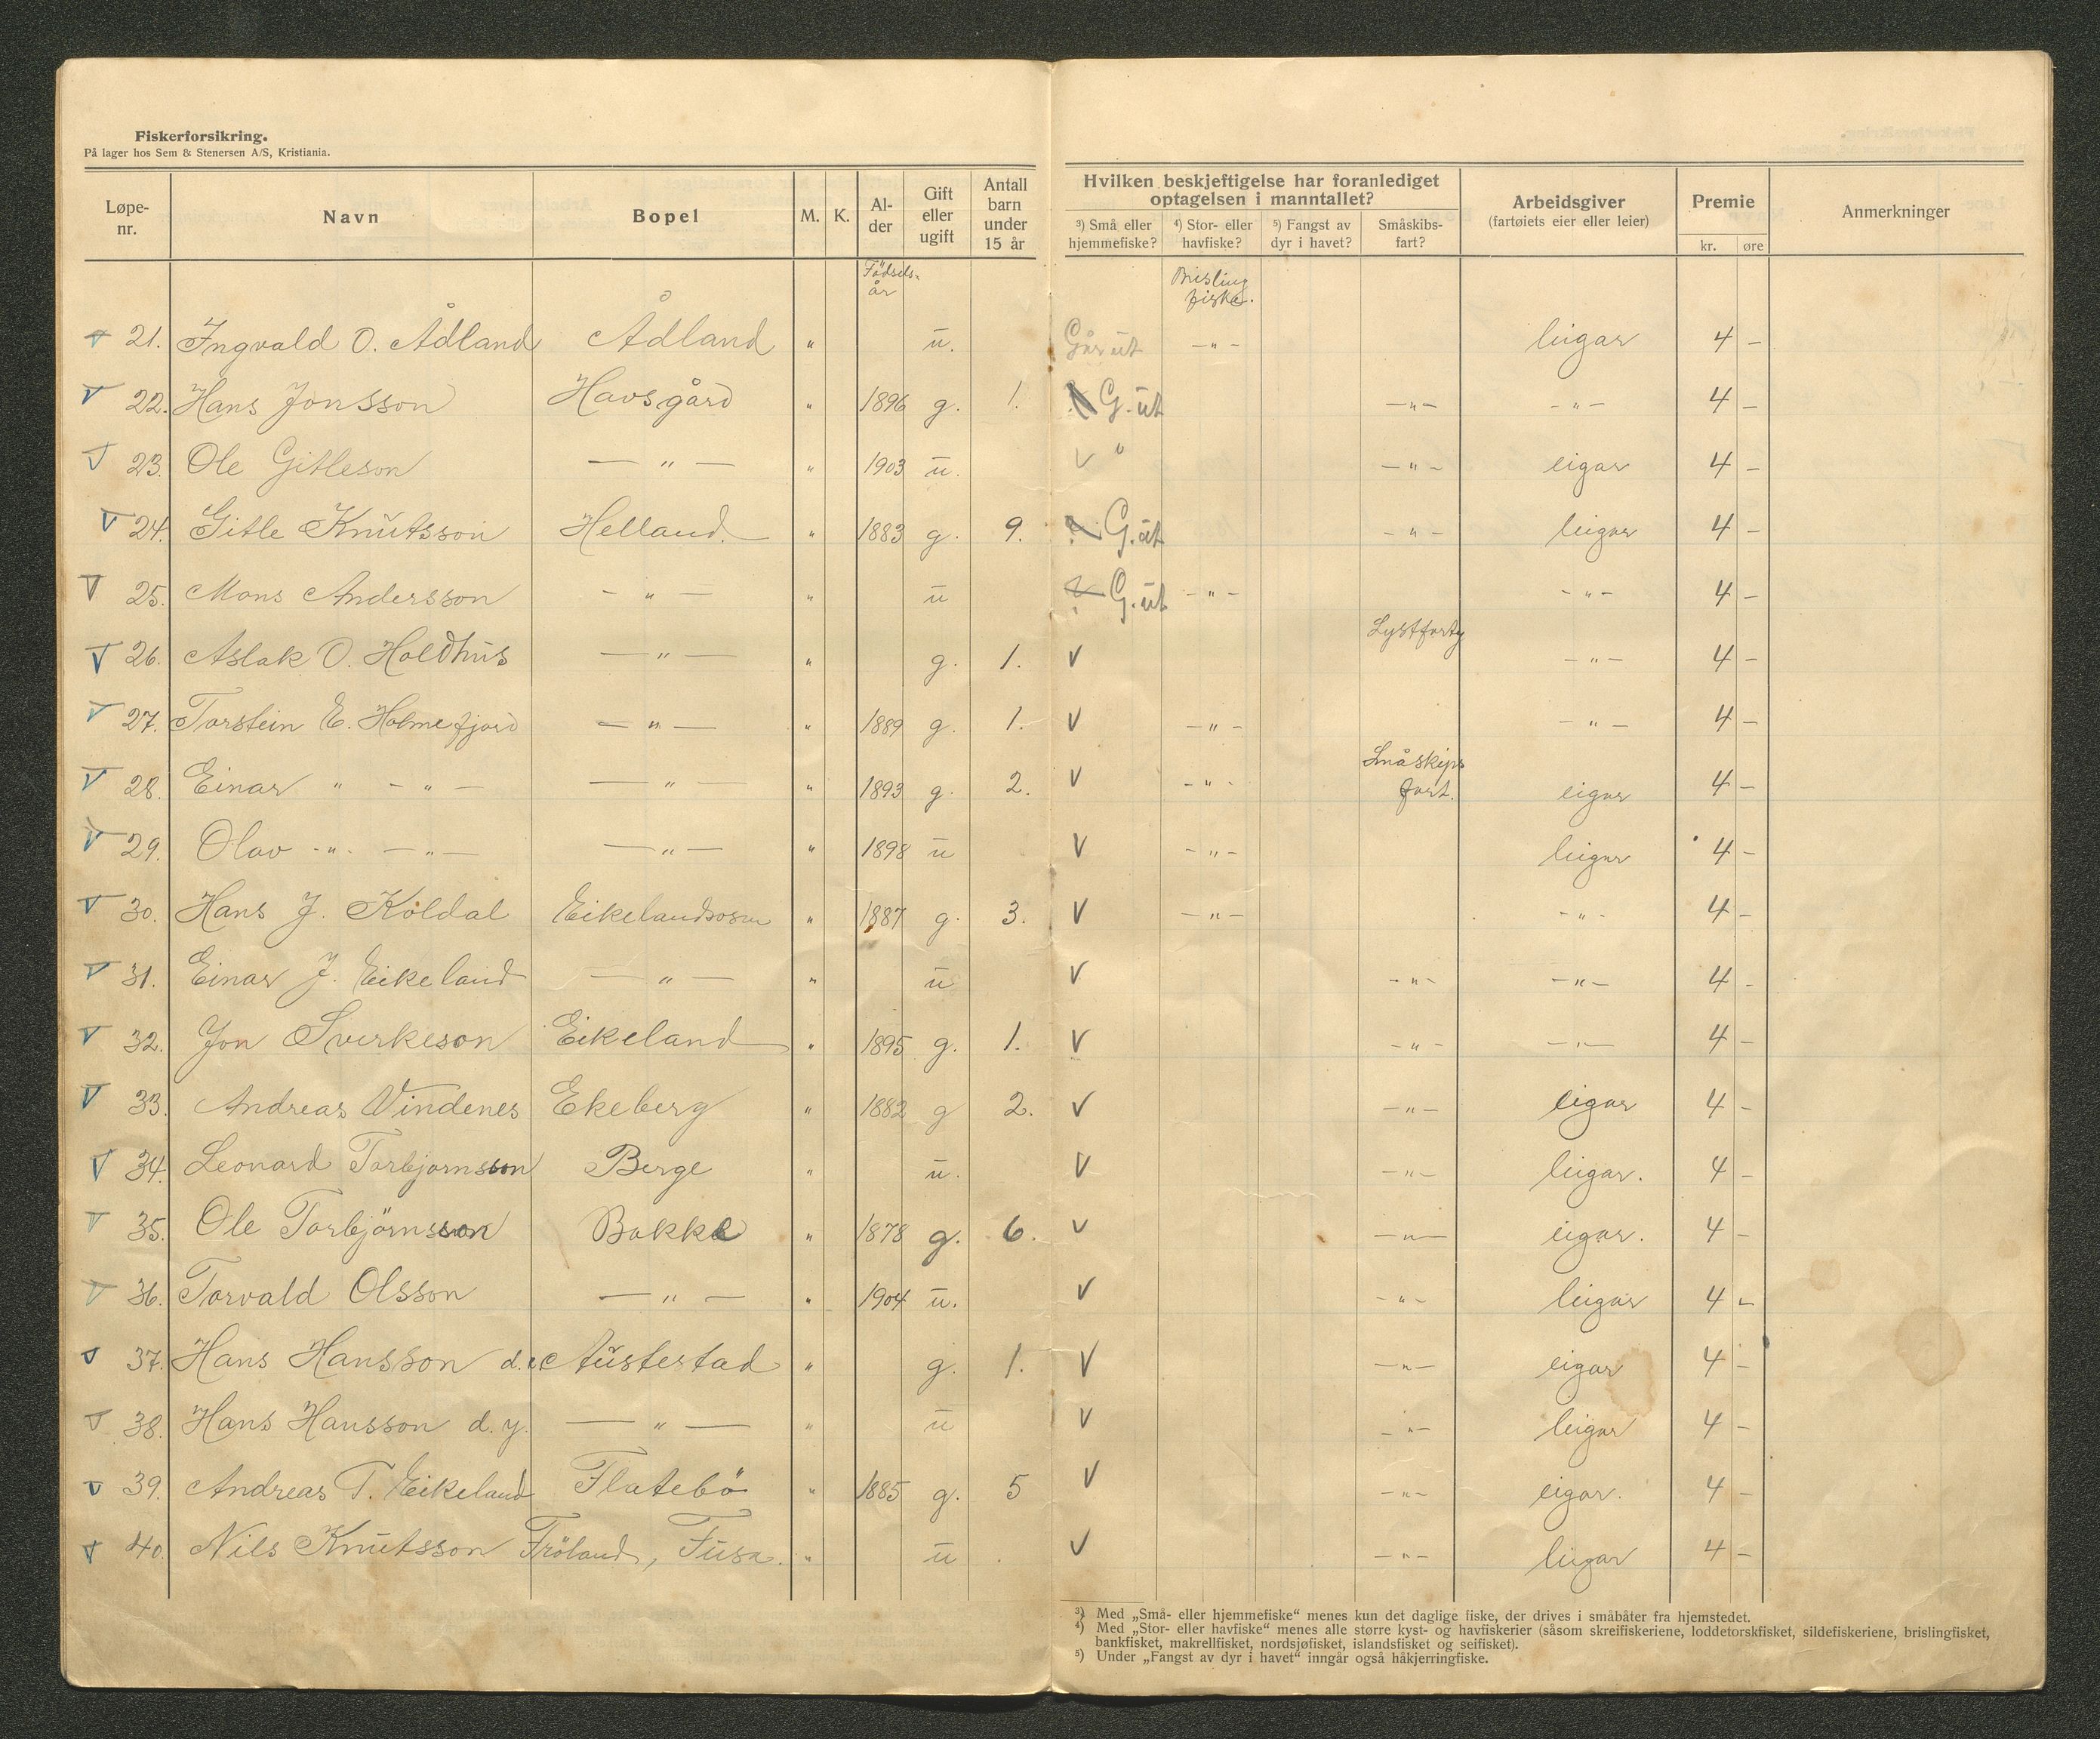 Fiskerforsikring.
På lager hos Sem & Stenersen A/S, Kristiania.
Løpe-nr. Navn Bopel M. K. Al-der Gift eller ugift Antall barn under 15 år Hvilken beskjeftigelse har foranlediget optagelsen i manntallet? Arbeidsgiver (fartøiets eier eller leier) Premie Anmerkninger
³) Små eller hjemmefiske? ⁴) Stor- eller havfiske? ⁵) Fangst av dyr i havet? Småskibs-fart? kr. øre
Födsels-år Brisling fiske.
21. Ingvald O. Ådland Ådland " u. Går ut —"— leigar 4 —
22. Hans Jonsson Havsgård " 1896 g. 1. G. ut —"— —"— 4 —
23. Ole Gitleson —"— " 1903 u. V " —"— eigar 4 —
24. Gitle Knutsson Helland. " 1883 g. 9. G. ut —"— leigar 4 —
25. Mons Andersson —"— " u ? G. ut —"— —"— 4 —
26. Aslak O. Holdhus —"— " g. 1. V Lystfarty —"— 4 —
27. Torstein E. Holmefjord —"— " 1889 g. 1. V —"— —"— 4 —
28. Einar " —"— —"— " 1893 g. 2. V —"— Småskips fart. eigar 4 —
29. Olav -"- —"— —"— " 1898 u V —"— leigar 4 —
30. Hans J. Koldal Eikelandsosen " 1887 g. 3. V —"— —"— 4 —
31. Einar J. Eikeland —"— " u V —"— —"— 4 -
32. Jon Sverkeson Eikeland " 1895 g. 1. V —"— —"— 4 —
33. Andreas Vindenes Ekeberg " 1882 g 2. V —"— eigar 4 —
34. Leonard Torbjornsson Berge " u. V —"— leigar. 4 —
35. Ole Torbjörnsson Bakke " 1878 g. 6. V —"— eigar. 4 —
36. Torvald Olsson —"— " 1904 u. V —"— leigar 4 —
37. Hans Hansson d.e. Austestad " g. 1. V —"— eigar 4 —
38. Hans Hansson d.y. —"— " u V —"— leigar 4 —
39. Andreas T. Eikeland Flatebö " 1885 g. 5 V —"— eigar. 4 —
40. Nils Knutsson Fröland, Fusa. " u V —"— leigar 4 —
³) Med „Små- eller hjemmefiske“ menes kun det daglige fiske, der drives i småbåter fra hjemstedet.
⁴) Med „Stor- eller havfiske“ menes alle større kyst- og havfiskerier (såsom skreifiskeriene, loddetorskfisket, sildefiskeriene, brislingfisket,
bankfisket, makrellfisket, nordsjøfisket, islandsfisket og seifisket).
⁵) Under „Fangst av dyr i havet“ inngår også håkjerringfiske.